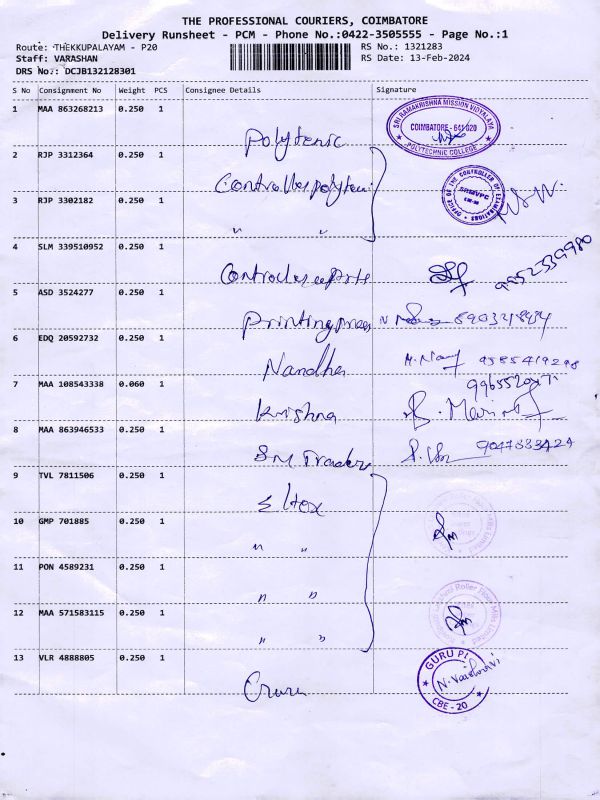 THE PROFESSIONAL COURIERS, COIMBATORE
Delivery Runsheet - PCM - Phone No.:0422-3505555 - Page No.:1
Route: THEKKUPALAYAM - P20
RS No.: 1321283
Staff: VARASHAN
RS Date: 13-Feb-2024
DRS No.: DCJB132128301
S No Consignment No Weight PCS Consignee Details Signature
1 MAA 863268213 0.250 1
SRI RAMAKRISHNA MISSION VIDYALAYA
COIMBATORE - 641 020
POLYTECHNIC COLLEGE
Polytenic
2 RJP 3312364 0.250 1
OFFICE OF THE CONTROLLER OF EXAMINATIONS
SRMVPC
3 RJP 3302182 0.250 1
" "
4 SLM 339510952 0.250 1
9952339980
5 ASD 3524277 0.250 1
Printing press
6 EDQ 20592732 0.250 1
Nandha
9385419298
7 MAA 108543338 0.060 1
Krishna
8 MAA 863946533 0.250 1
S M Traders
9047333424
9 TVL 7811506 0.250 1
10 GMP 701885 0.250 1
" "
11 PON 4589231 0.250 1
" "
12 MAA 571583115 0.250 1
Roller Flour Mills Limited
" "
13 VLR 4888805 0.250 1
GURU
N. Vaishnavi
CBE - 20